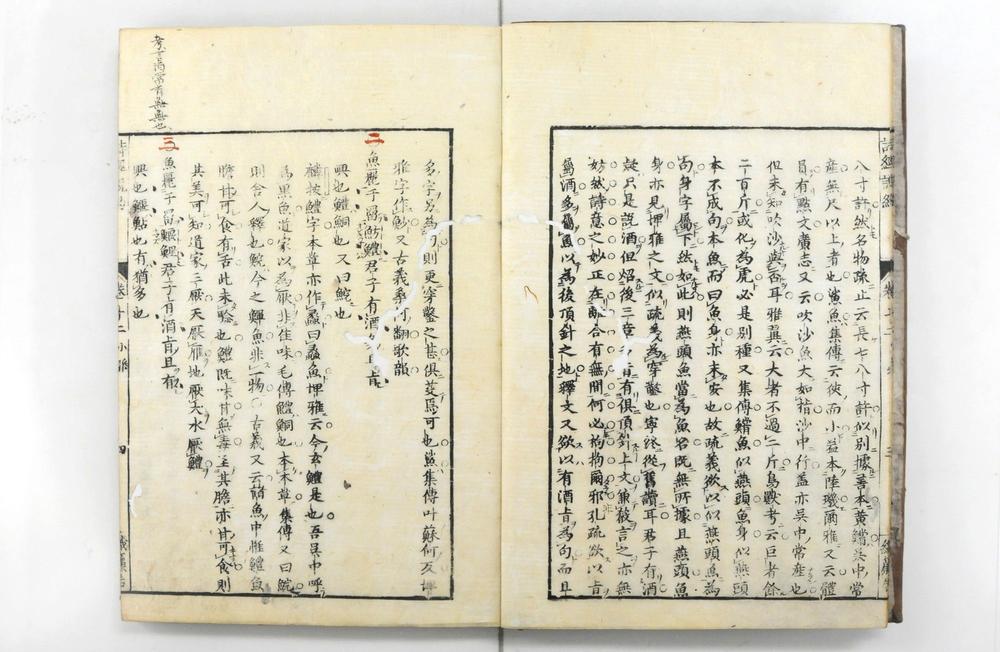 八寸許然名物疏止云長七八寸許似別據善本黄鱨吴中常
産無尺以上者也鯊魚集傳云狹而小益本陸璣爾雅又云體
員有點文廣志又云吹沙魚大如指沙中行蓋亦吴中常産也
但未知吹沙與否耳雅翼云大者不過二斤鳥獸考云巨者餘
二百斤或化為虎必是別種又集傳鱨魚似燕頭魚身似燕頭
本不成句本魚而曰魚身亦未安也故疏義欲以似燕頭魚為
句身字屬下然如此則燕頭魚當為魚名既無所據且燕頭魚
身亦見埤雅之文似疏為穿鑿也寧終從舊譜耳君子有酒
疑只是説酒但炤後三章有有俱頂針上文兼殽言之亦無
妨然詩意之妙正在離合有無間何必拘拘爾邪孔疏欲以旨
屬酒多屬魚以為後頂針之地釋文又欲以有酒旨為句而且
多字另為句則更穿鑿之甚俱芟焉可也鯊集傳叶蘇何反
雅字作魦又古義奉何翻歌韻
二 魚麗于罶魴鱧君子有酒多且旨
興也鱧鮦也又曰鯇也
按鱧字本草亦作蠡曰蠡魚埤雅云今玄鱧是也吾吴中呼
為黒魚道家以為厭非佳味毛傳鱧鮦也本本草集傳又曰鯇
則舍人釋也鯇今之鯶魚非一物古義又云諸魚中惟鱧魚
膽甘可食有舌此未驗也鱧既味甘無毒主其膽亦甘可食則
其美可知道家三厭天厭雁地厭犬水厭鱧
三 魚麗于罶鰋鯉君子有酒旨且有
興也鰋鮎也有猶多也
卷十二小雅
四
三